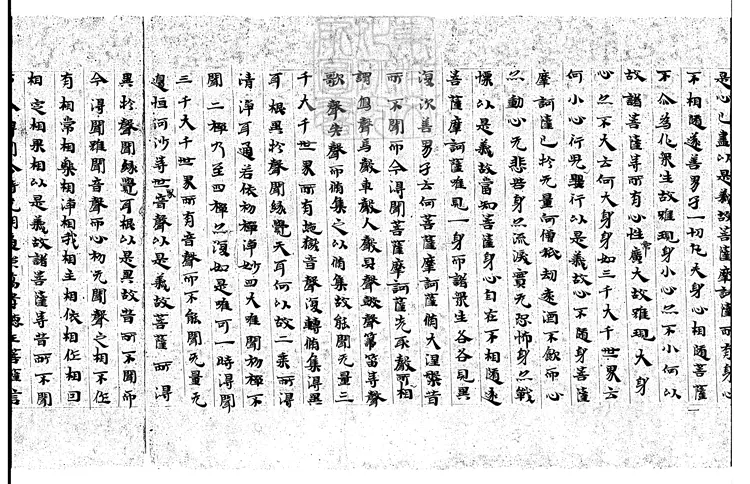 是心已盡以是義故菩薩摩訶薩而有身心
不相随逐善男子一切凡夫身心相随菩薩
不尒為化衆生故雖現身小心亦不小何以
故諸菩薩等所有心性常廣大故雖現大身
心亦不大云何大身身如三千大千世界云
何小心行兒嬰行以是義故心不随身菩薩
摩訶薩已於无量阿僧祇劫遠酒不飲而心
亦動心无悲苦身亦流淚實无恐怖身亦戰
慄以是義故當知菩薩身心自在不相随逐
菩薩摩訶薩唯現一身而諸衆生各各見異
復次善男子云何菩薩摩訶薩脩大涅槃昔
所不聞而今得聞菩薩摩訶薩先取聲相所
謂馬聲車聲人聲貝聲皷聲簫笛等聲
歌聲哭聲而脩集之以脩集故能聞无量三
千大千世界所有地獄音聲復轉脩集得異
耳根異於聲聞緣覺天耳何以故二乘所得
清淨耳通若依初禪淨妙四大唯聞初禪不
聞二禪乃至四禪亦復如是唯可一時得聞
三千大千世界所有音聲而不能聞无量无
邊恒河沙等世界音聲以是義故菩薩所得
異於聲聞緣覺耳根以是異故昔所不聞而
今得聞雖聞音聲而心初无聞聲之相不作
有相常相樂相淨相我相主相依相作相因
相定相果相以是義故諸菩薩等昔所不聞